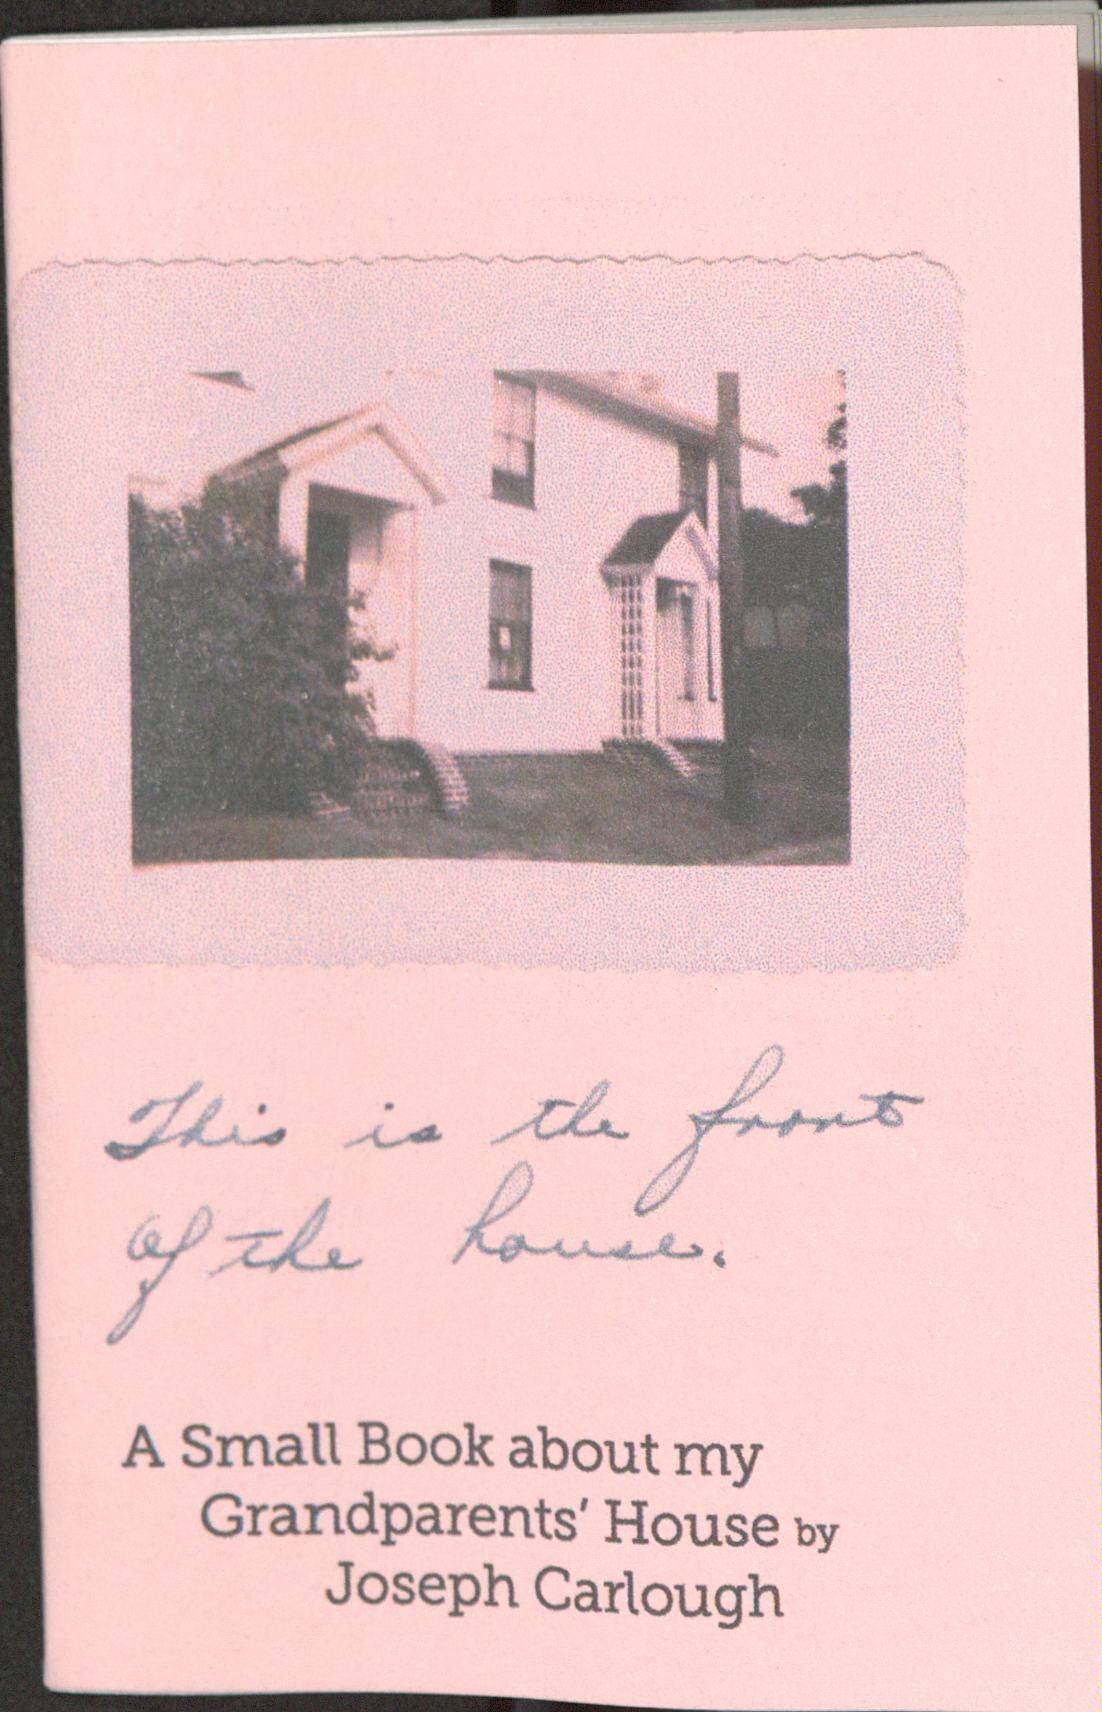 This is the front
of the house.
A Small Book about my
Grandparents' House by
Joseph Carlough